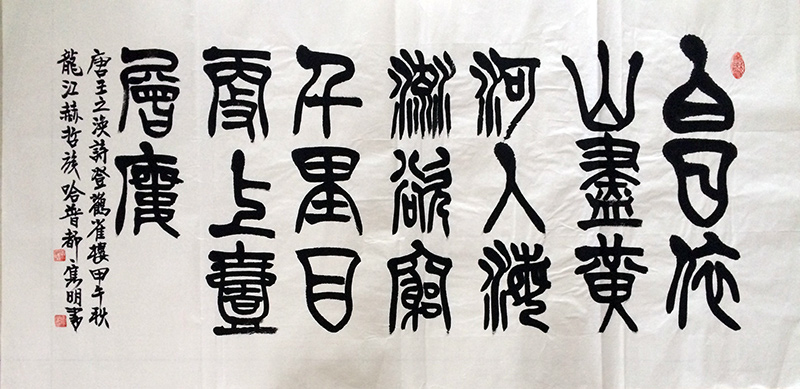 白日依
山盡黄
河入海
流欲窮
千里目
更上壹
層樓
唐王之涣詩登鸛雀樓甲午秋
龍江赫哲族哈普都·隽明書